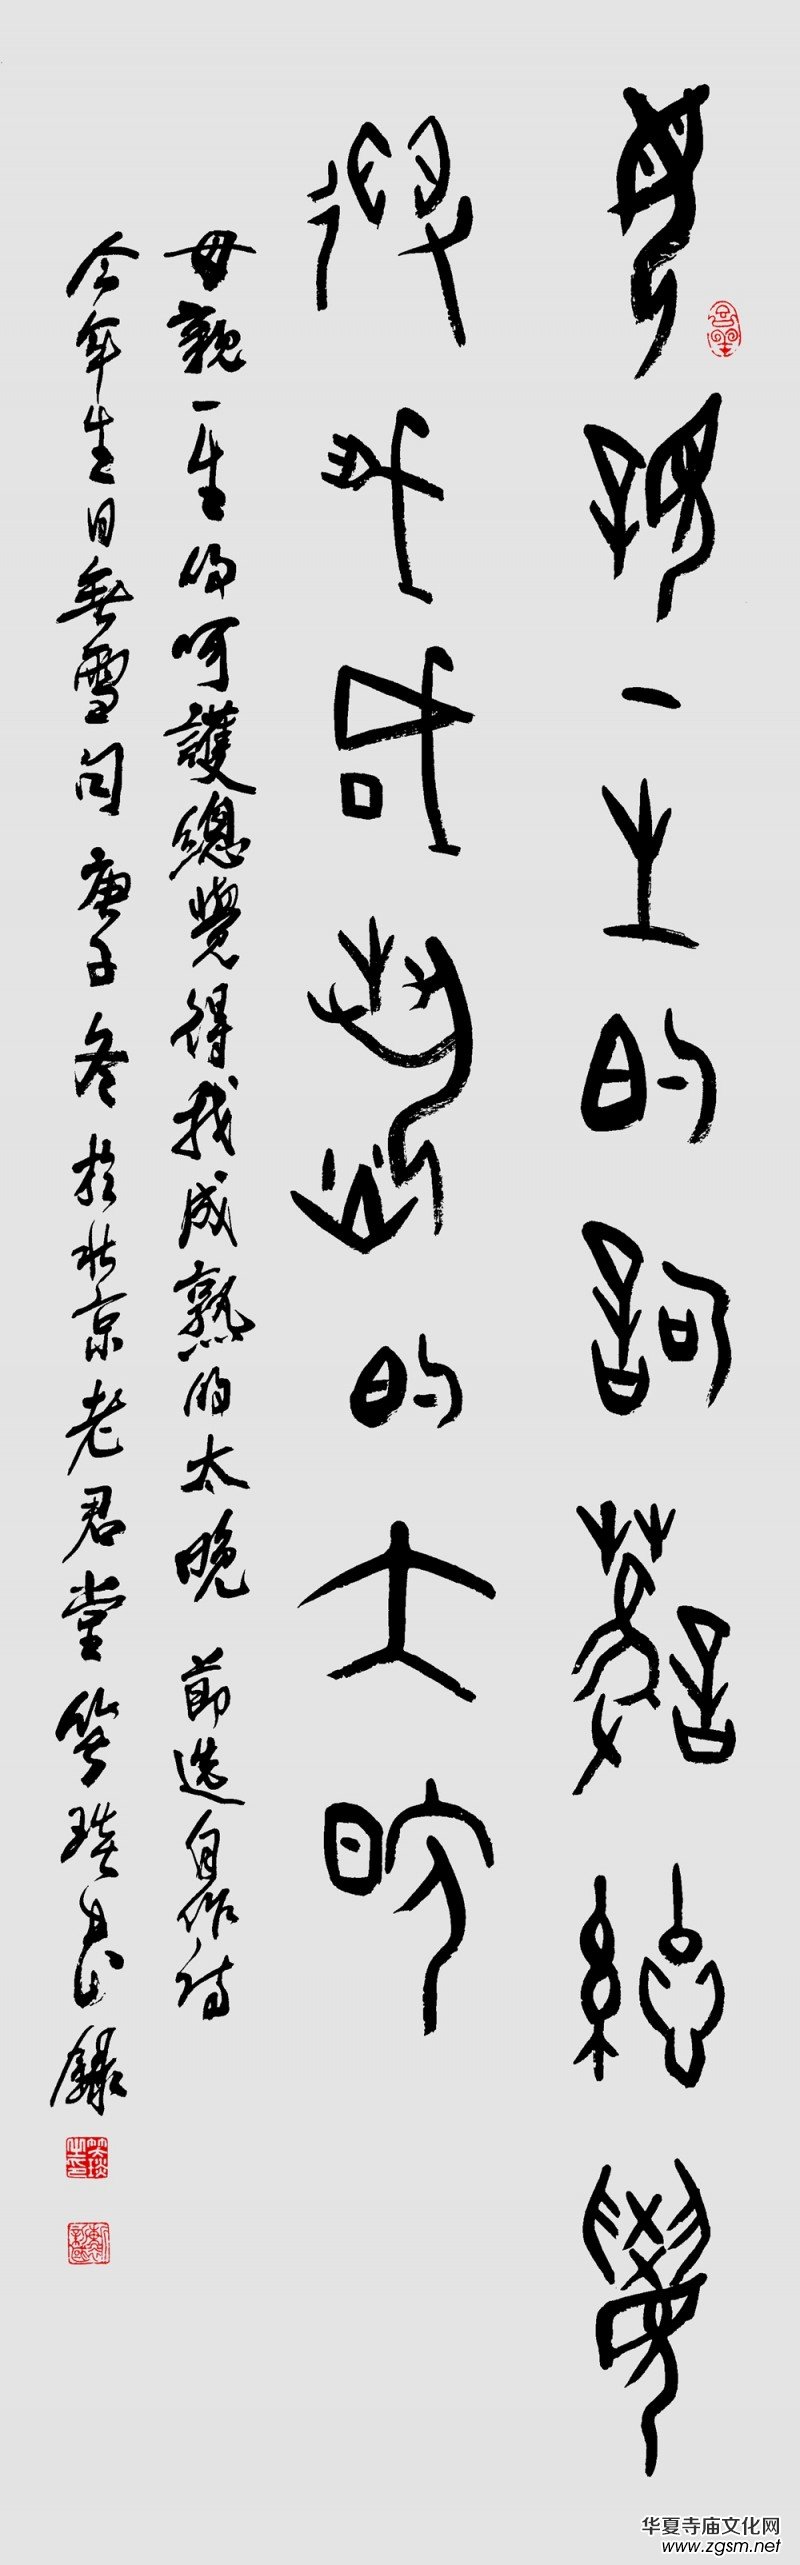 母親一生的訶護總覺
得我成熟的太晚
母親一生的呵護總覺得我成熟的太晚 節選自作詩
今年生日無雪句 庚子冬於北京老君堂 笑琰書錄
华夏寺庙文化网
www.zgsm.net